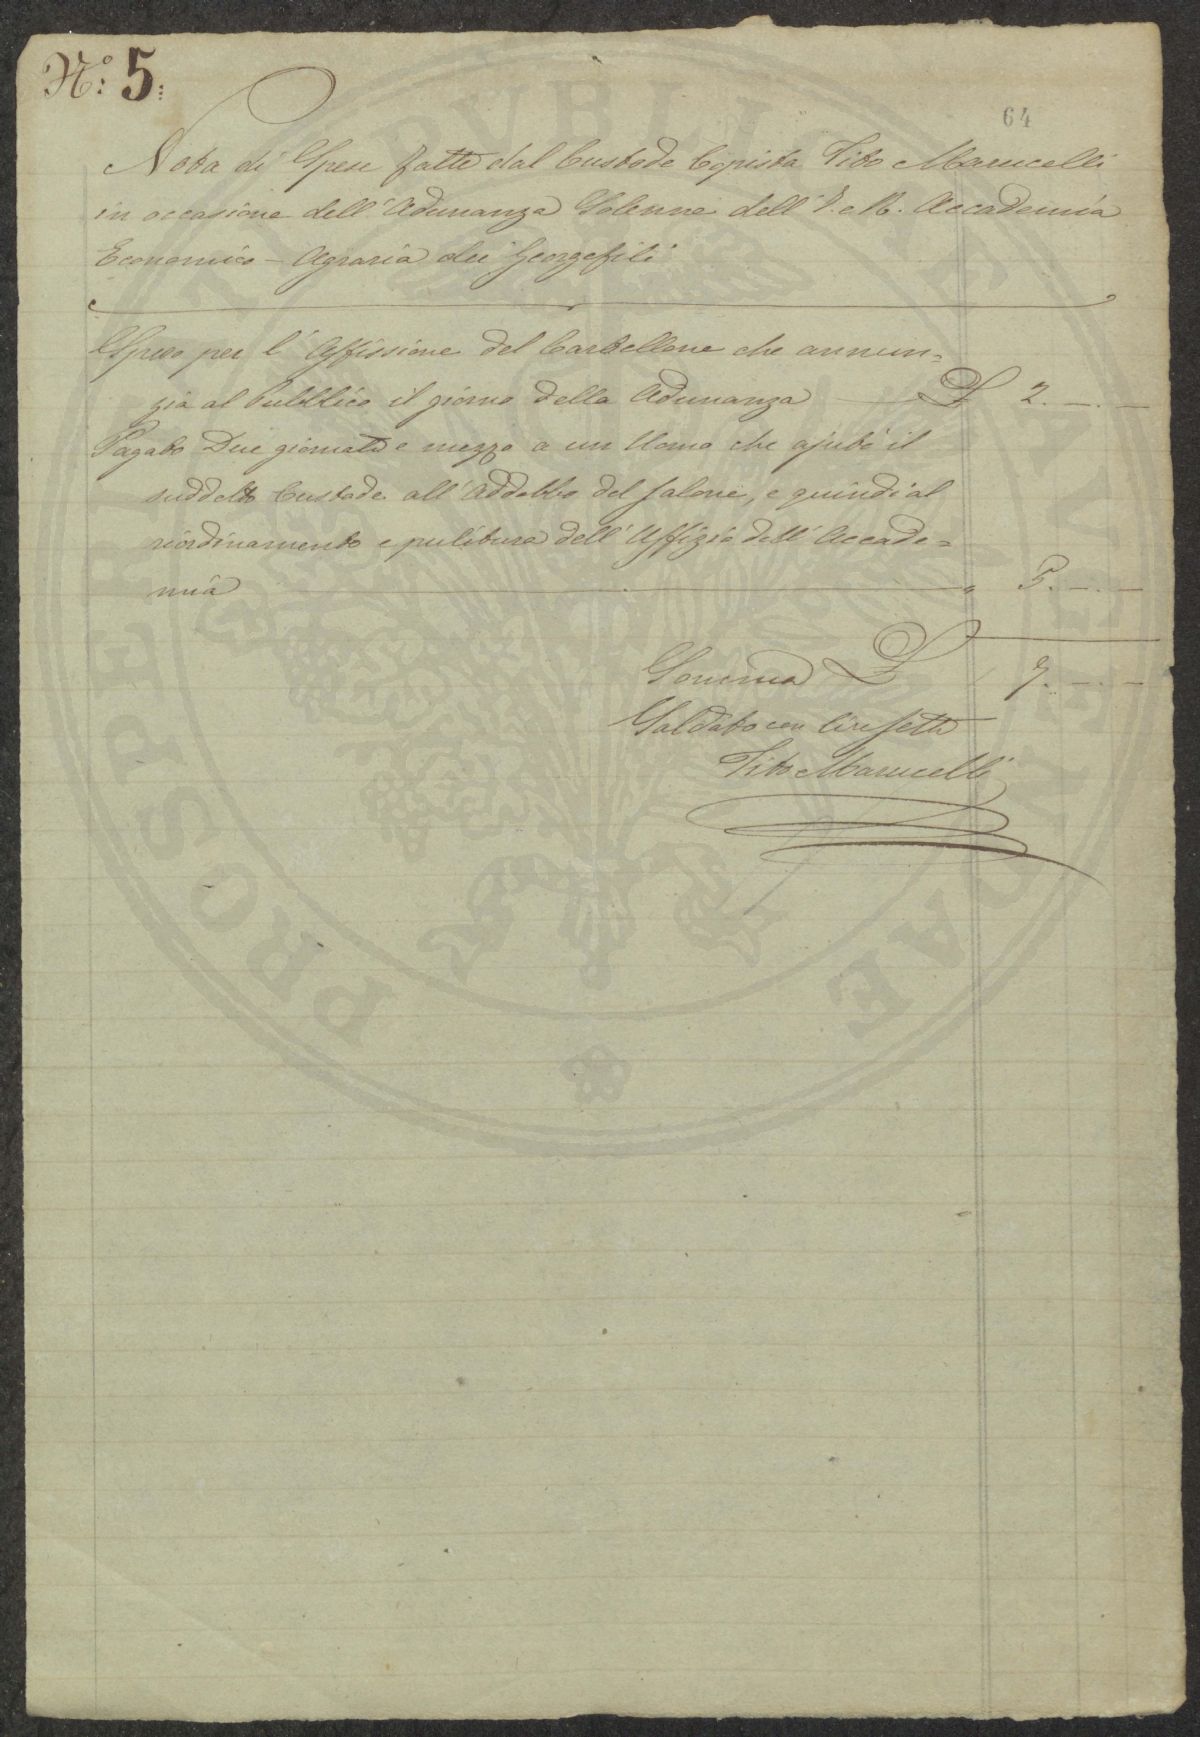 N.º 5.
64
Nota di Spese fatte dal Custode Copista Tito Marucelli
in occasione dell'Adunanza Solenne dell'I. e R. Accademia
Economico-Agraria dei Georgofili
Speso per l'Affissione del Cartellone che annun=
zia al Pubblico il giorno della Adunanza £ 2. –. –
Pagato Due giornate e mezzo a un Uomo che ajutò il
suddetto Custode all'Addobbo del Salone, e quindi al
riordinamento e pulitura dell'Uffizio dell'Accade=
mia " 5. –. –
Somma £ 7. –. –
Saldato con lire sette
Tito Marucelli
PROSPERITATI PVBLICAE AVGENDAE